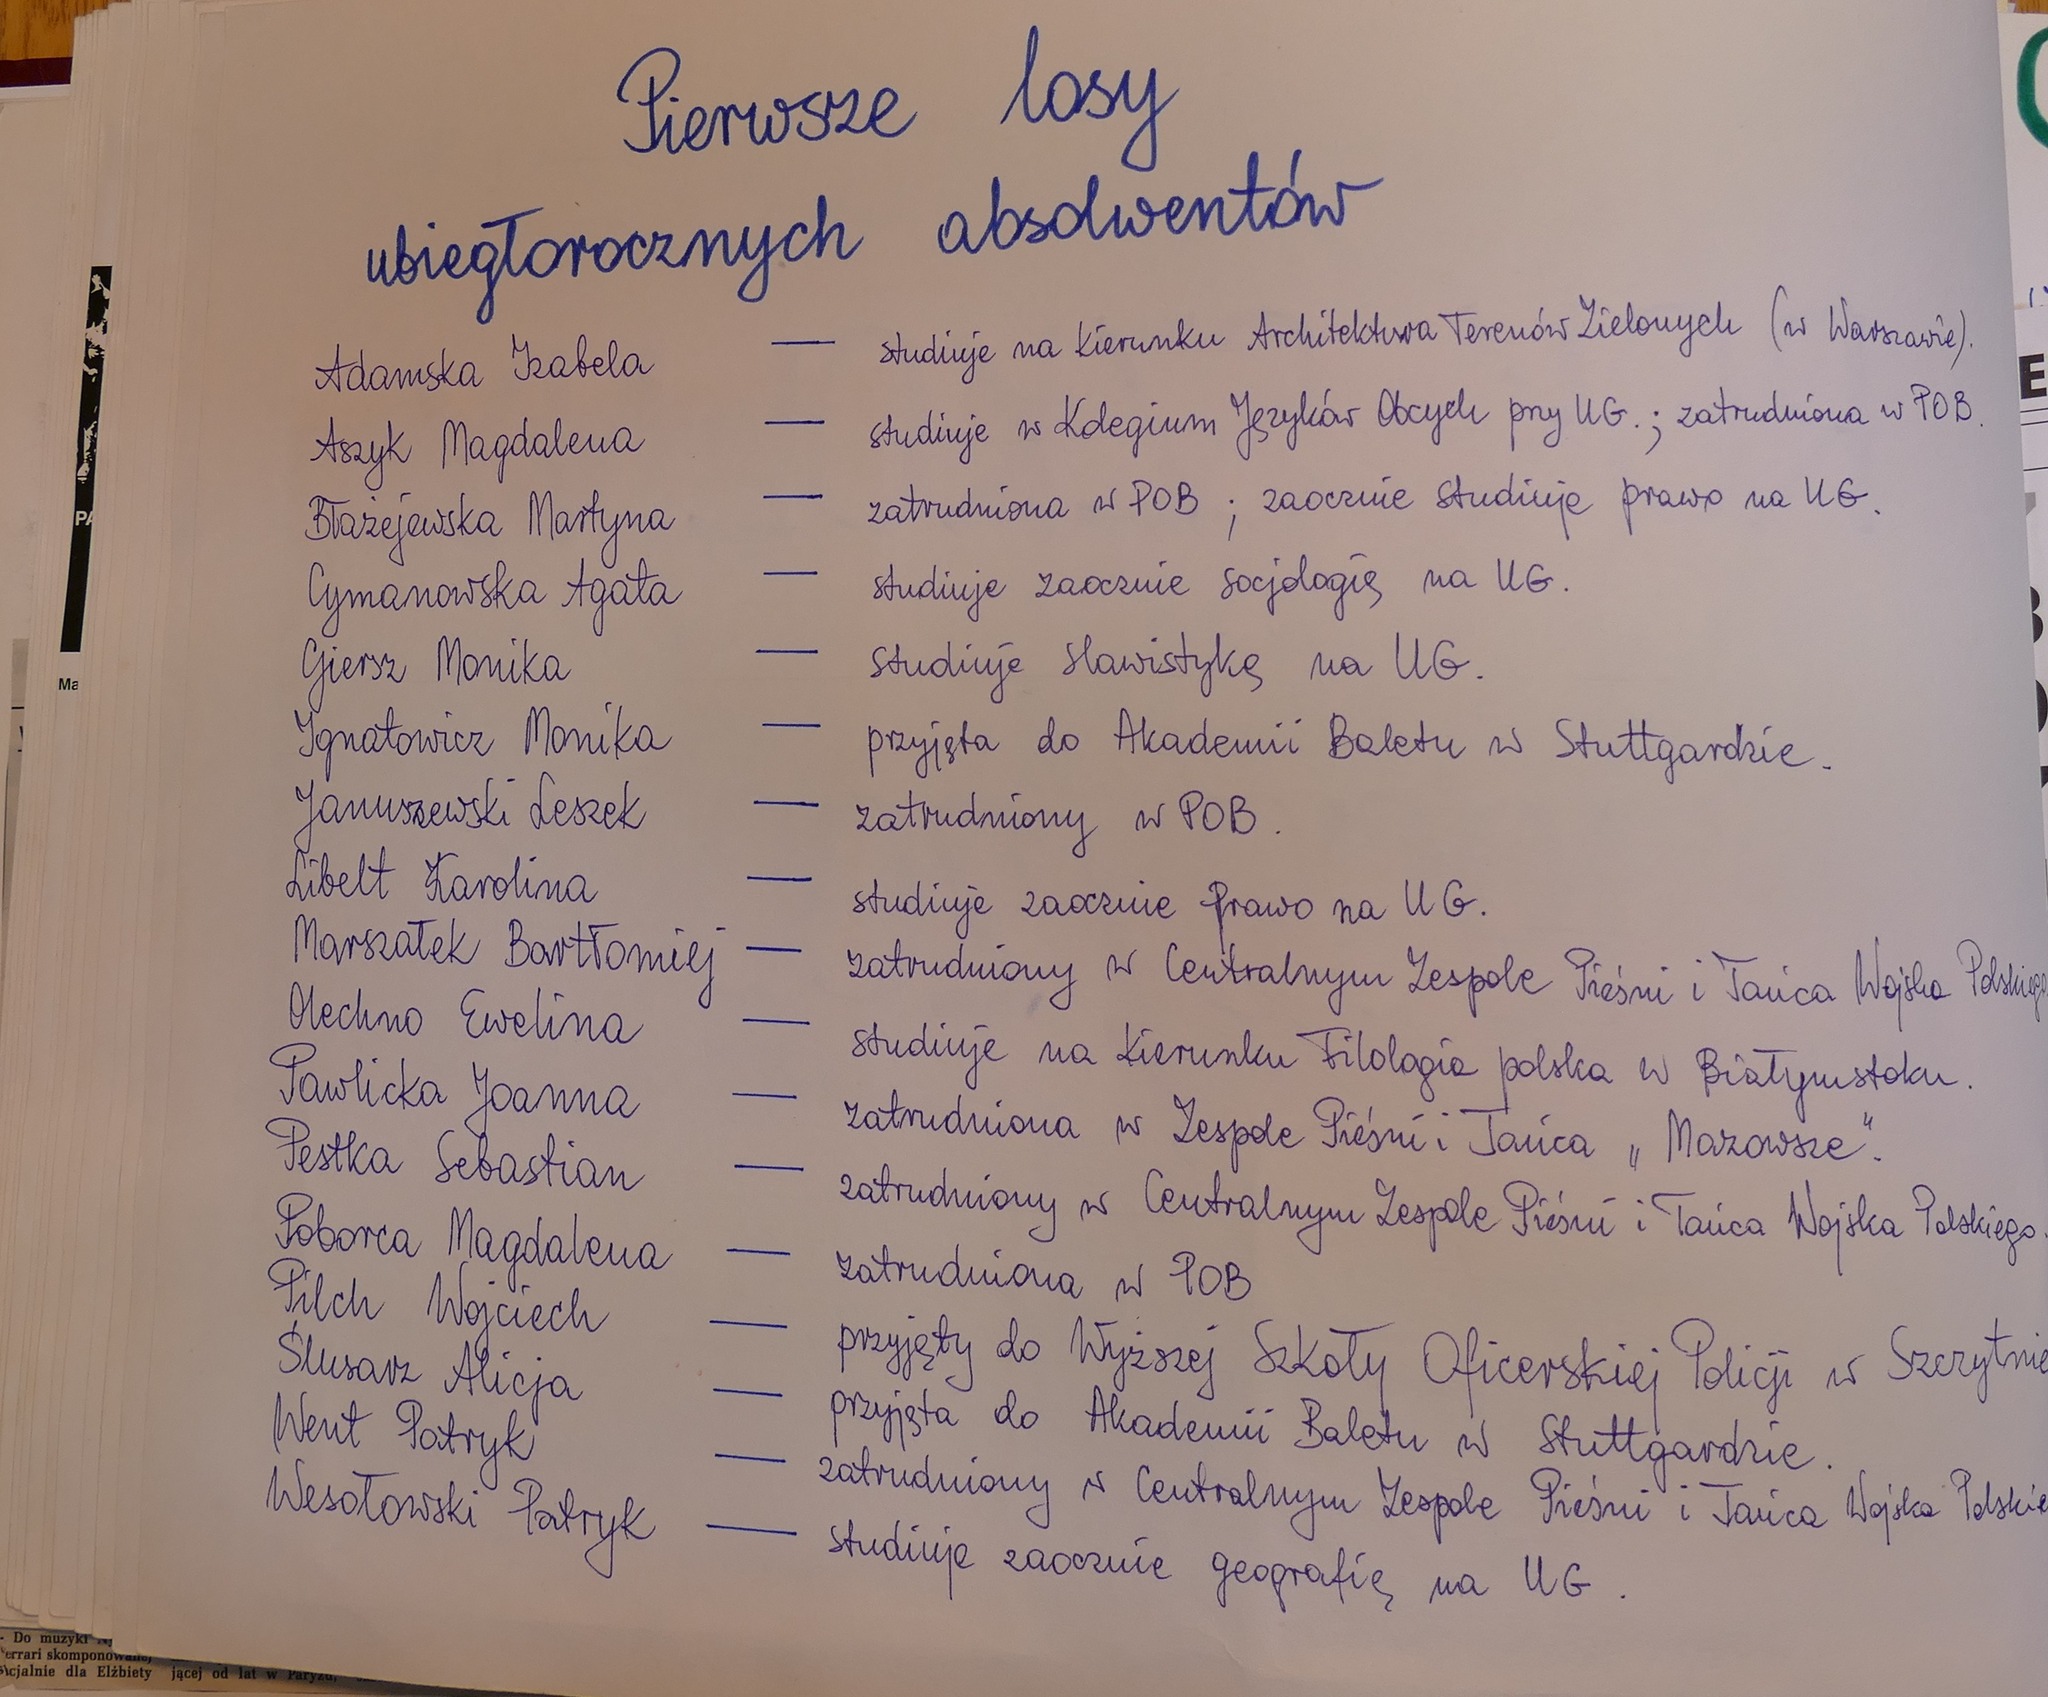 Pierwsze losy
ubiegłorocznych absolwentów
Adamska Izabela — studiuje na kierunku Architektura Terenów Zielonych (w Warszawie).
Aszyk Magdalena — studiuje w Kolegium Języków Obcych przy UG.; zatrudniona w POB.
Błażejewska Martyna — zatrudniona w POB; zaocznie studiuje prawo na UG.
Cymanowska Agata — studiuje zaocznie socjologię na UG.
Giersz Monika — studiuje slawistykę na UG.
Ignatowicz Monika — przyjęta do Akademii Baletu w Stuttgardzie.
Januszewski Leszek — zatrudniony w POB.
Libelt Karolina — studiuje zaocznie prawo na UG.
Marszałek Bartłomiej — zatrudniony w Centralnym Zespole Pieśni i Tańca Wojska Polskiego
Olechno Ewelina — studiuje na kierunku Filologia polska w Białymstoku.
Pawlicka Joanna — zatrudniona w Zespole Pieśni i Tańca „Mazowsze".
Pestka Sebastian — zatrudniony w Centralnym Zespole Pieśni i Tańca Wojska Polskiego.
Poborca Magdalena — zatrudniona w POB
Pilch Wojciech — przyjęty do Wyższej Szkoły Oficerskiej Policji w Szczytnie
Ślusarz Alicja — przyjęta do Akademii Baletu w Stuttgardzie.
Went Patryk — zatrudniony w Centralnym Zespole Pieśni i Tańca Wojska Polskie
Wesołowski Patryk — studiuje zaocznie geografię na UG.
PA
Ma
E
- Do muzyki
errari skomponowanej
cjalnie dla Elżbiety jącej od lat w Paryżu,